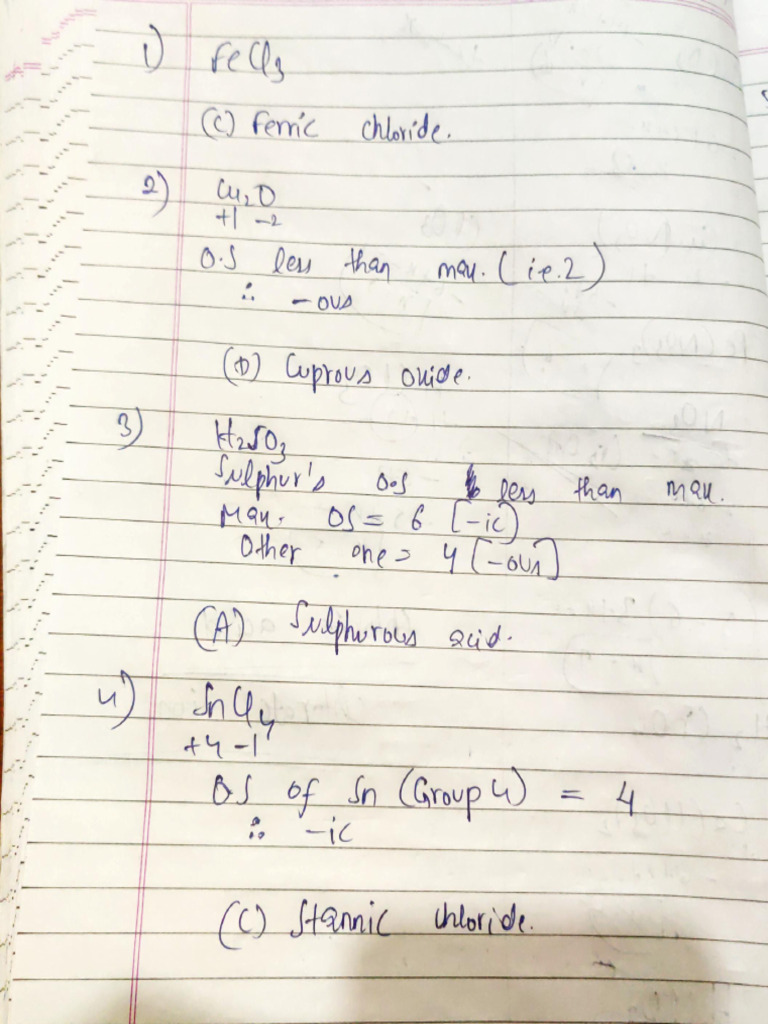 1) FeCl3
(C) Ferric chloride.
2) Cu2O
+1 -2
O.S less than max. (i.e. 2)
∴ -ous
(D) Cuprous oxide.
3) H2SO3
Sulphur's O.S less than max.
Max. OS = 6 [-ic)
Other one = 4 [-ous]
(A) Sulphurous acid.
4) SnCl4
+4 -1
OS of Sn (Group 4) = 4
∴ -ic
(C) Stannic chloride.